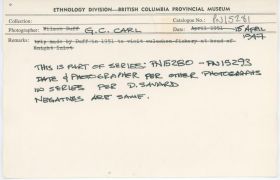 ETHNOLOGY DIVISION—BRITISH COLUMBIA PROVINCIAL MUSEUM
Collection: Catalogue No.: PN15281
Photographer: Wilson Duff G.C. CARL Date: April 1951 15 APRIL 1947
Remarks: trip made by Duff in 1951 to visit eulachon fishery at head of
Knight Inlet
THIS IS PART OF SERIES: PN15280 - PN15293
DATE & PHOTOGRAPHER PER OTHER PHOTOGRAPHS
IN SERIES PER D. SAVARD
NEGATIVES ARE SAME.